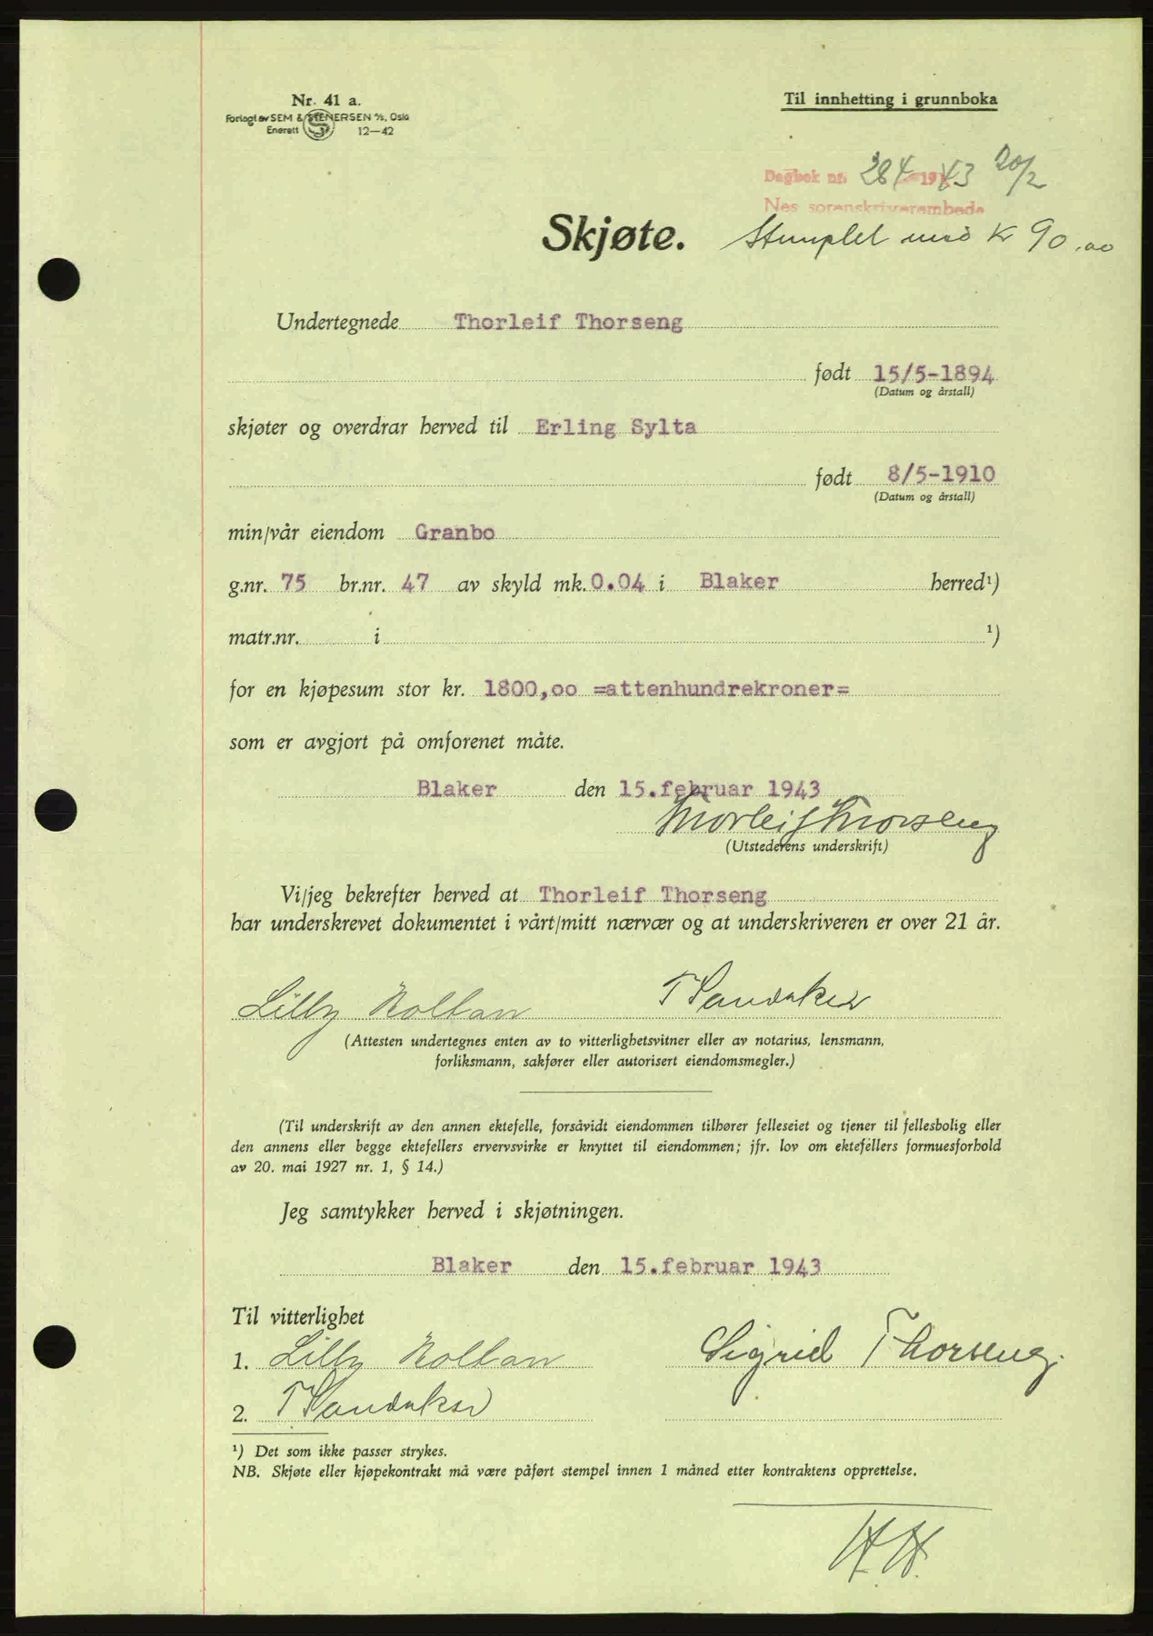 Nr. 41 a.
Forlagt av SEM & STENERSEN A/S, Oslo
Enerett 12-42
Til innhefting i grunnboka
Dagbok nr. 284 1943 20/2
Nes sorenskriverembede
Skjøte. Stemplet med kr 90.00
Undertegnede Thorleif Thorseng
født 15/5-1894
(Datum og årstall)
skjøter og overdrar herved til Erling Sylta
født 8/5-1910
(Datum og årstall)
min/vår eiendom Granbo
g.nr. 75 br.nr. 47 av skyld mk. 0.04 i Blaker herred¹)
matr.nr. i ¹)
for en kjøpesum stor kr. 1800,oo =attenhundrekroner=
som er avgjort på omforenet måte.
Blaker den 15.februar 1943
Thorleif Thorseng
(Utstederens underskrift)
Vi/jeg bekrefter herved at Thorleif Thorseng
har underskrevet dokumentet i vårt/mitt nærvær og at underskriveren er over 21 år.
Lilly Holtan T Sandaker
(Attesten undertegnes enten av to vitterlighetsvitner eller av notarius, lensmann,
forliksmann, sakfører eller autorisert eiendomsmegler.)
(Til underskrift av den annen ektefelle, forsåvidt eiendommen tilhører felleseiet og tjener til fellesbolig eller
den annens eller begge ektefellers ervervsvirke er knyttet til eiendommen; jfr. lov om ektefellers formuesforhold
av 20. mai 1927 nr. 1, § 14.)
Jeg samtykker herved i skjøtningen.
Blaker den 15.februar 1943
Til vitterlighet
1. Lilly Holtan Sigrid Thorseng.
2. T Sandaker
¹) Det som ikke passer strykes.
NB. Skjøte eller kjøpekontrakt må være påført stempel innen 1 måned etter kontraktens opprettelse.
H.H.